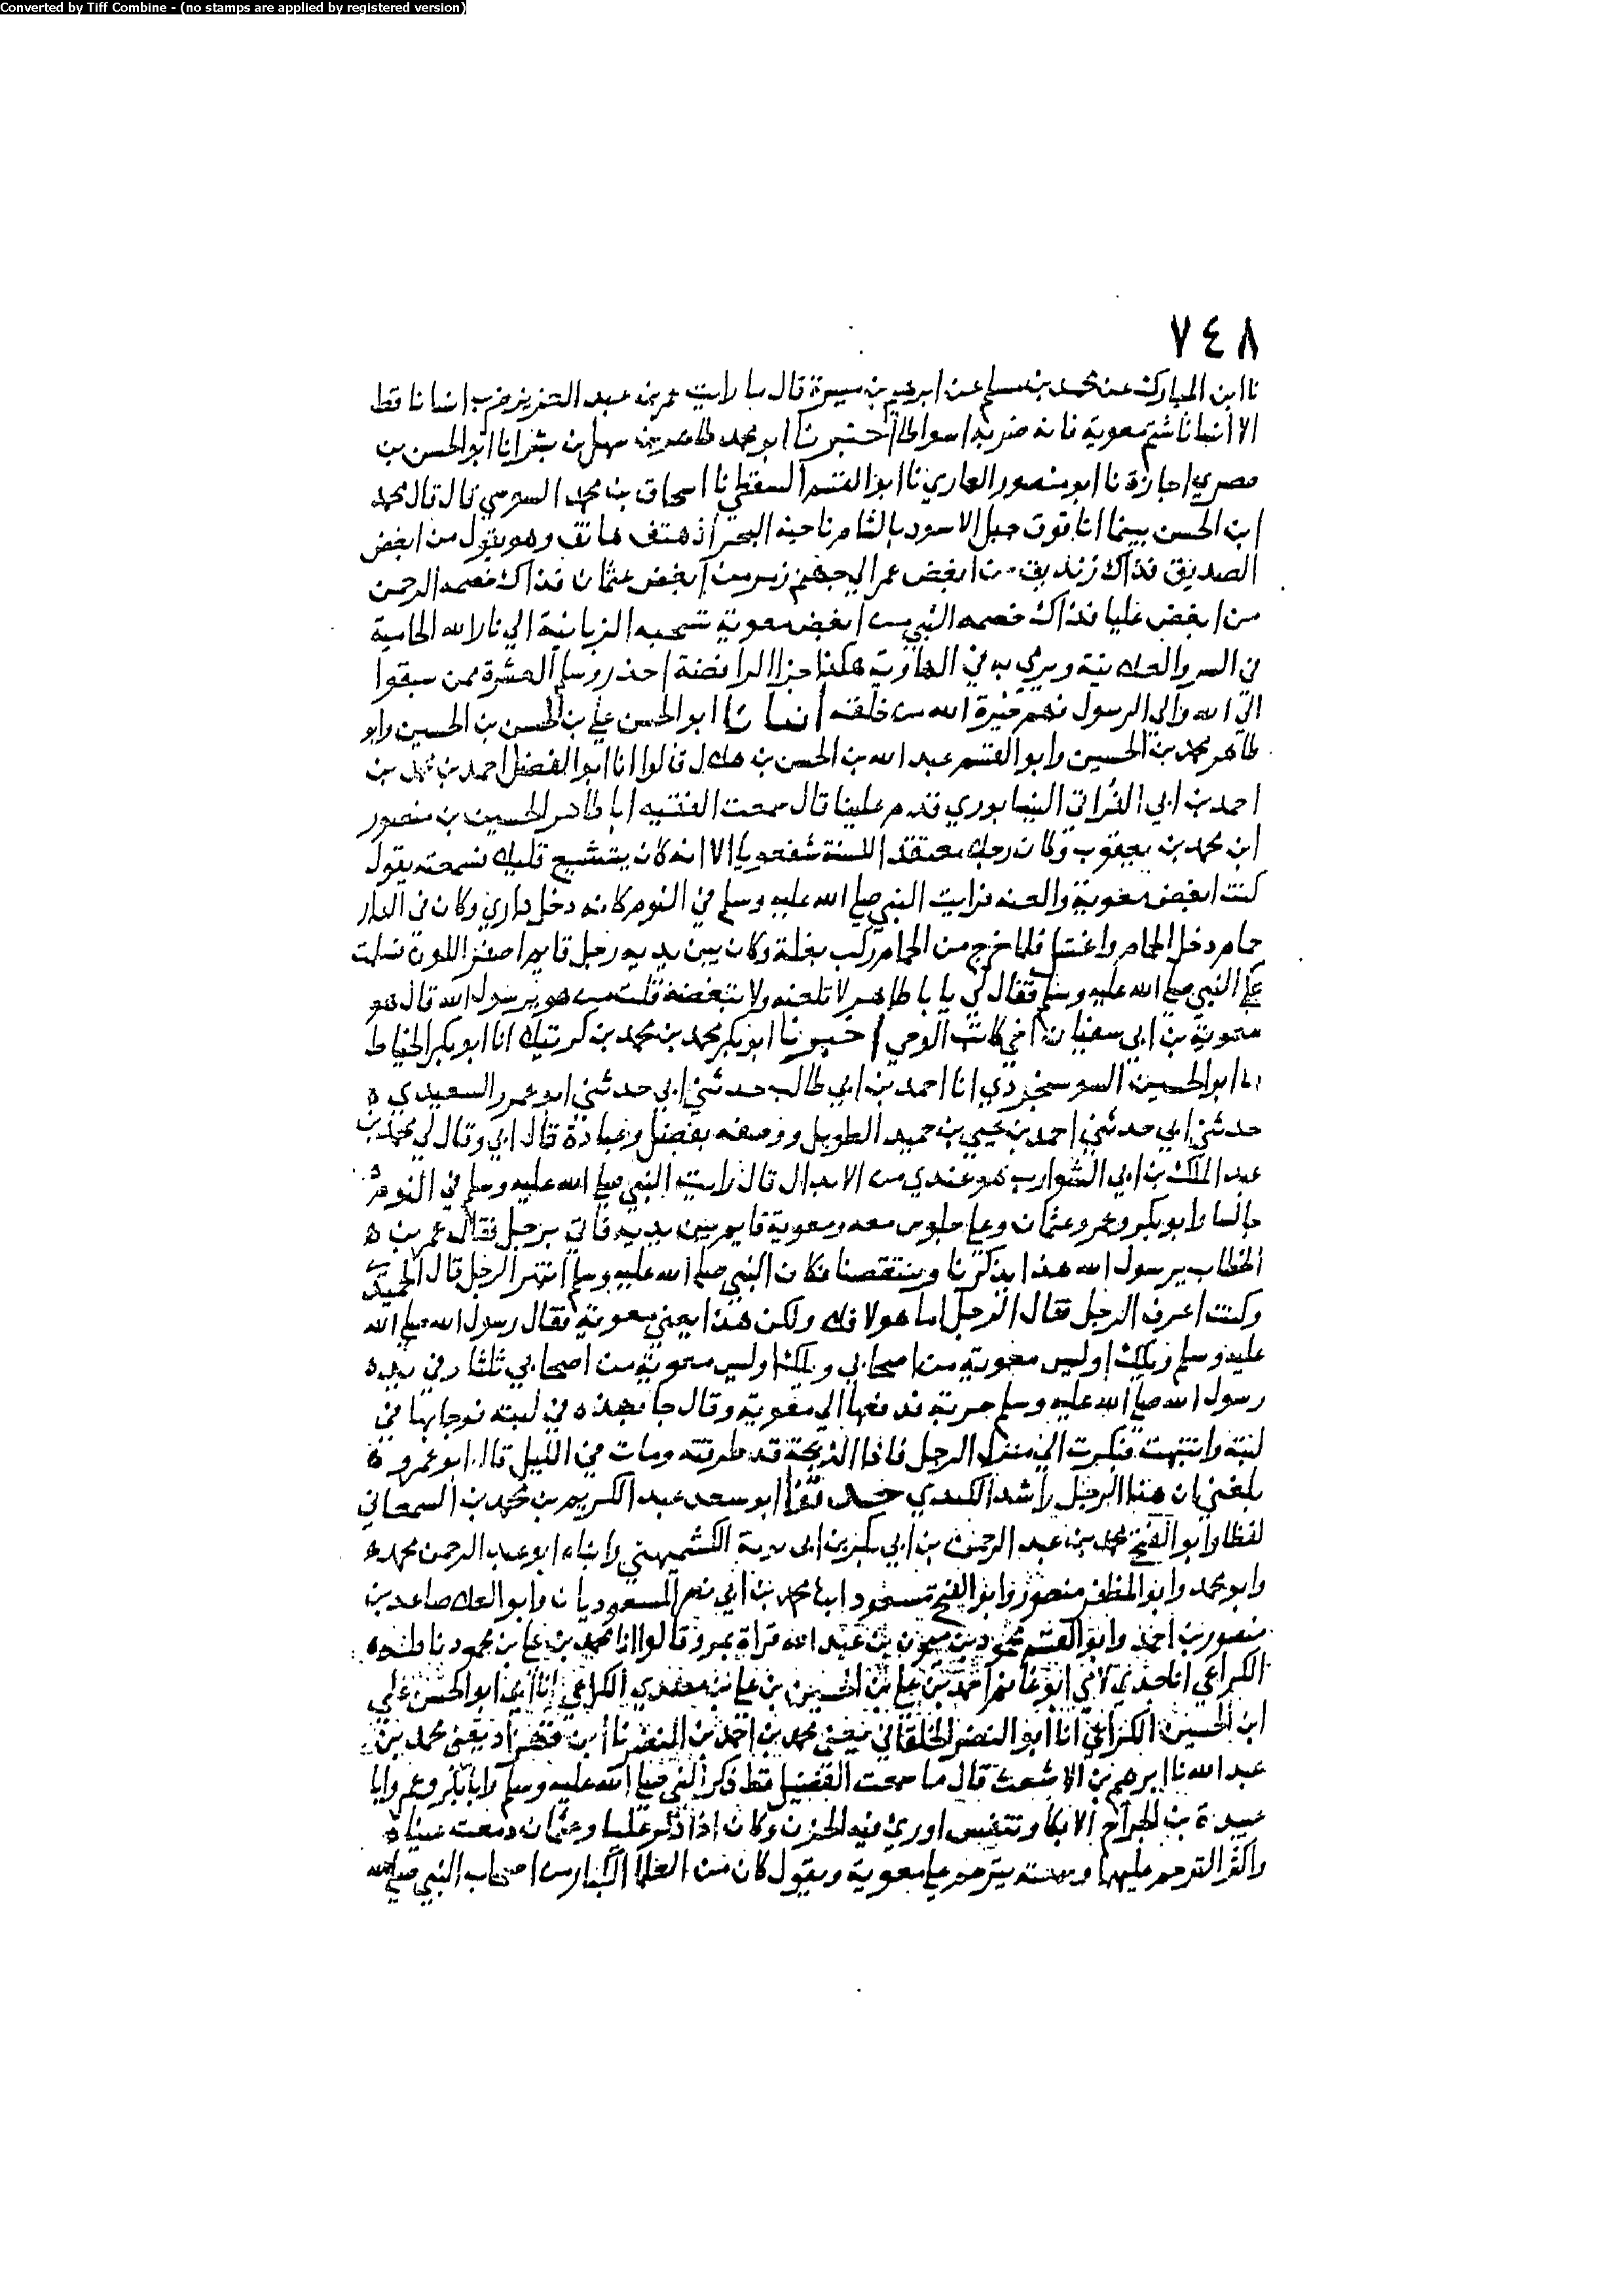 Converted by Tiff Combine - (no stamps are applied by registered version)
٧٤٨
نا ابن المبارك عن محمد بن مسلم عن ابرهيم بن ميسرة قال ما رايت عمر بن عبد العزيز ضرب انسانا قط
الا انسانا شتم معوية فانه ضربه اسواطا اخبرنا ابو محمد طاهر بن سهل بن بشر انا ابو الحسن بن
مصري اجازة نا ابو منصور العماري نا ابو القسم السقطي نا اسحاق بن محمد السوسي قال قال محمد
ابن الحسن بينما انا فوق جبل الاسود بالشام ناحية البحر اذ هتف هاتف وهو يقول من ابغض
الصديق فذاك زنديق من ابغض عمر الى جهنم زمر من ابغض عثمان فذاك خصمه الرحمن
من ابغض عليا فذاك خصمه النبي من ابغض معوية تسحبه الزبانية الي نار الله الحامية
في السر والعلانية ويرمي به في الهاوية هكذا جزا الرافضة احذروا سب العشرة ممن سبقوا
الي الله والى الرسول فهم خيرة الله من خلقه انبانا ابو الحسن علي بن الحسن بن الحسين وابو
طاهر محمد بن الحسين وابو القسم عبد الله بن الحسن بن هلال قالوا انا ابو الفضل احمد بن محمد بن
احمد بن ابي الفراتي النيسابوري قدم علينا قال سمعت الفقيه ابا طاهر الحسين بن منصور
ابن محمد بن يعقوب وكان رجلا معتقدا للسنة شفعويا الا انه كان يتشيع قليلا فسمعته يقول
كنت ابغض معوية والعنه فرايت النبي صلى الله عليه وسلم في النوم كانه دخل داري وكان في الدار
حمام دخل الحمام واغتسل فلما خرج من الحمام ركب بغلة وكان بين يديه رجل قايم اصفر اللون فسلمت
على النبي صلى الله عليه وسلم فقال لي يا با طاهر لا تلعنه ولا تبغضه قلت من هو يرسول الله قال هو
معوية بن ابي سفيان اخي كاتب الوحي اخبرنا ابو بكر محمد بن محمد بن كرتيلا انا ابو بكر الخياط
انا ابو الحسين السوسنجردي انا احمد بن ابي طالب حدثني ابي حدثني ابو عمرو السعيدي ه
حدثني ابي حدثني احمد بن يحيى بن حميد الطويل ووصفه بفضل وعبادة قال ابي وقال لي محمد بن
عبد الملك بن ابي الشوارب هو عندي من الابدال قال رايت النبي صلى الله عليه وسلم في النوم
جالسا وابو بكر وعمر وعثمان وعلي جلوس معه ومعوية قايم بين يديه فاتي برجل فقال عمر بن ه
الخطاب يرسول الله هذا يذكرنا وينتقصنا فكان النبي صلى الله عليه وسلم انتهر الرجل قال الحميدي
وكنت اعرف الرجل فقال الرجل اما هولا فلا ولكن هذا يعني معوية فقال رسول الله صلى الله
عليه وسلم ويلك اوليس معوية من اصحابي ويلك اوليس معوية من اصحابي ثلثا وفي يده
رسول الله صلى الله عليه وسلم حربة فدفعها الي معوية وقال جا بهذه في لبته فوجا بها في
لبته وانتبهت فبكرت الي منزل الرجل فاذا الذبحة قد طرقته ومات في الليل قال ابو عمرو ه
بلغني ان هذا الرجل راشد الكندي حدثنا ابو سعد عبد الكريم بن محمد بن السمعاني
لفظا وابو الفتح محمد بن عبد الرحمن بن ابي بكر بن ابى الكشميهني وابناه ابو عبد الرحمن محمد ه
وابو محمد وابو المظفر منصور وابو الفتح مسعود ابنا محمد بن ابي نصر المسعوديان وابو العلا صاعد بن
منصور بن احمد وابو القسم محمود بن ميمون بن عبد الله قراة بمرو قالوا انا محمد بن علي بن محمود نا
الكراعي انا جدي لامي ابو غانم احمد بن علي بن الحسين بن علي بن الكراعي انا ابي ابو الحسن علي
ابن الحسين الكراعي انا ابو النصر الخلقاني يعني محمد بن احمد بن المنضر نا ابن قهزاد يعني محمد بن
عبد الله نا ابرهيم بن الاشعث قال ما سمعت الفضيل قط ذكر النبي صلى الله عليه وسلم وابا بكر وعمر وابا
عبيدة بن الجراح الا بكا وتنفس اوري فيه الحزن وكان اذا ذكر عليا وعثمان دمعت عيناه
واكثر الترحم عليهما وسمعته يترحم على معوية ويقول كان من العلما الكبار من اصحاب النبي صلى الله